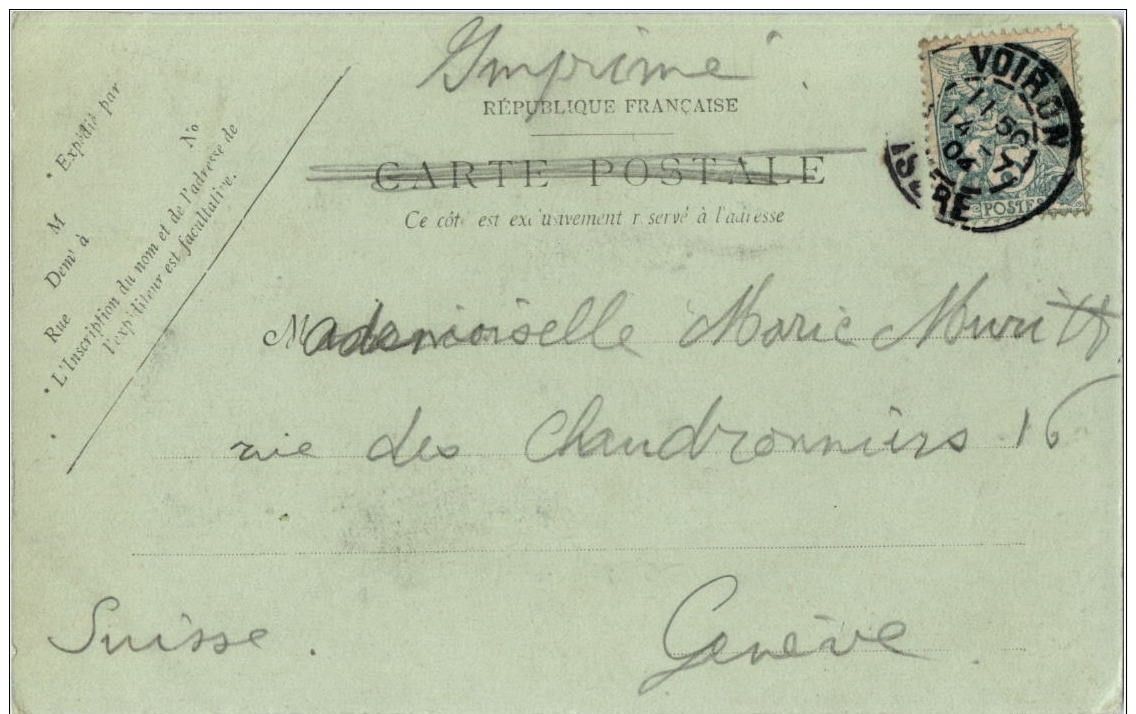 Imprimé
RÉPUBLIQUE FRANÇAISE
CARTE POSTALE
Ce côté est exclusivement réservé à l'adresse
VOIRON
11 50
14
04
ISÈRE
POSTES
Expédié par
M
Demt à
Rue No
L'Inscription du nom et de l'adresse de
l'expéditeur est facultative.
Mademoiselle Marie Muritt
rue des Chaudronniers 16
Suisse. Genève